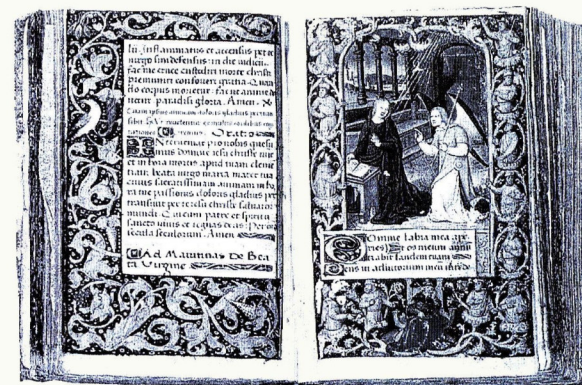 inflammatus et accensus per te
virgo sim defensus in die iudicii.
fac me cruce custodiri morte christi
premuniri confoveri gratia. Quan
do corpus morietur. fac ut anime do
netur paradisi gloria. Amen.
animam doloris gladius pertran
sibit. Ut revelentur ex multis cordibus cogi
tationes. Oremus. Oratio
nterveniat pro nobis quesu
mus domine iesu christe nunc
et in hora mortis apud tuam clemen
tiam beata virgo maria mater tua
cuius sacratissimam animam in ho
ra tue passionis doloris gladius per
transivit per te iesu christe salvator
mundi. Qui cum patre et spiritu
sancto vivis et regnas deus. Per om
secula seculorum. Amen
Ad Matutinas De Bea
ta Virgine
Domine labia mea ape
ries. Et os meum annu
tiabit laudem tuam
Deus in adiutorium meum